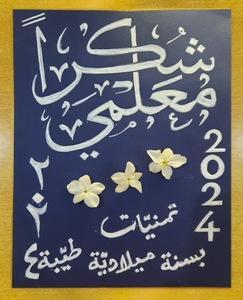 شكراً
معلمي
2024
٢٠٢٤
تمنيّات
بسنة ميلاديّة طيّبة